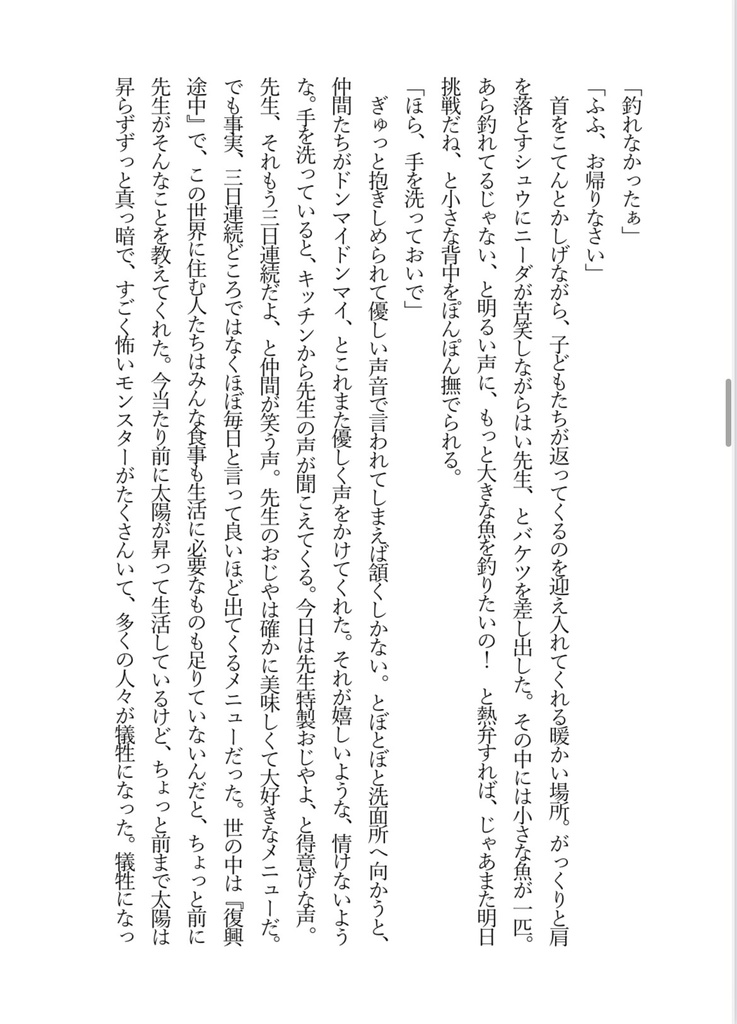 「釣れなかったぁ」
「ふふ、お帰りなさい」
　首をこてんとかしげながら、子どもたちが返ってくるのを迎え入れてくれる暖かい場所。がっくりと肩
を落とすシュウにニーダが苦笑しながらはい先生、とバケツを差し出した。その中には小さな魚が一匹。
あら釣れてるじゃない、と明るい声に、もっと大きな魚を釣りたいの！　と熱弁すれば、じゃあまた明日
挑戦だね、と小さな背中をぽんぽん撫でられる。
「ほら、手を洗っておいで」
　ぎゅっと抱きしめられて優しい声音で言われてしまえば頷くしかない。とぼとぼと洗面所へ向かうと、
仲間たちがドンマイドンマイ、とこれまた優しく声をかけてくれた。それが嬉しいような、情けないよう
な。手を洗っていると、キッチンから先生の声が聞こえてくる。今日は先生特製おじやよ、と得意げな声。
先生、それもう三日連続だよ、と仲間が笑う声。先生のおじやは確かに美味しくて大好きなメニューだ。
でも事実、三日連続どころではなくほぼ毎日と言って良いほど出てくるメニューだった。世の中は『復興
途中』で、この世界に住む人たちはみんな食事も生活に必要なものも足りていないんだと、ちょっと前に
先生がそんなことを教えてくれた。今当たり前に太陽が昇って生活しているけど、ちょっと前まで太陽は
昇らずずっと真っ暗で、すごく怖いモンスターがたくさんいて、多くの人々が犠牲になった。犠牲になっ